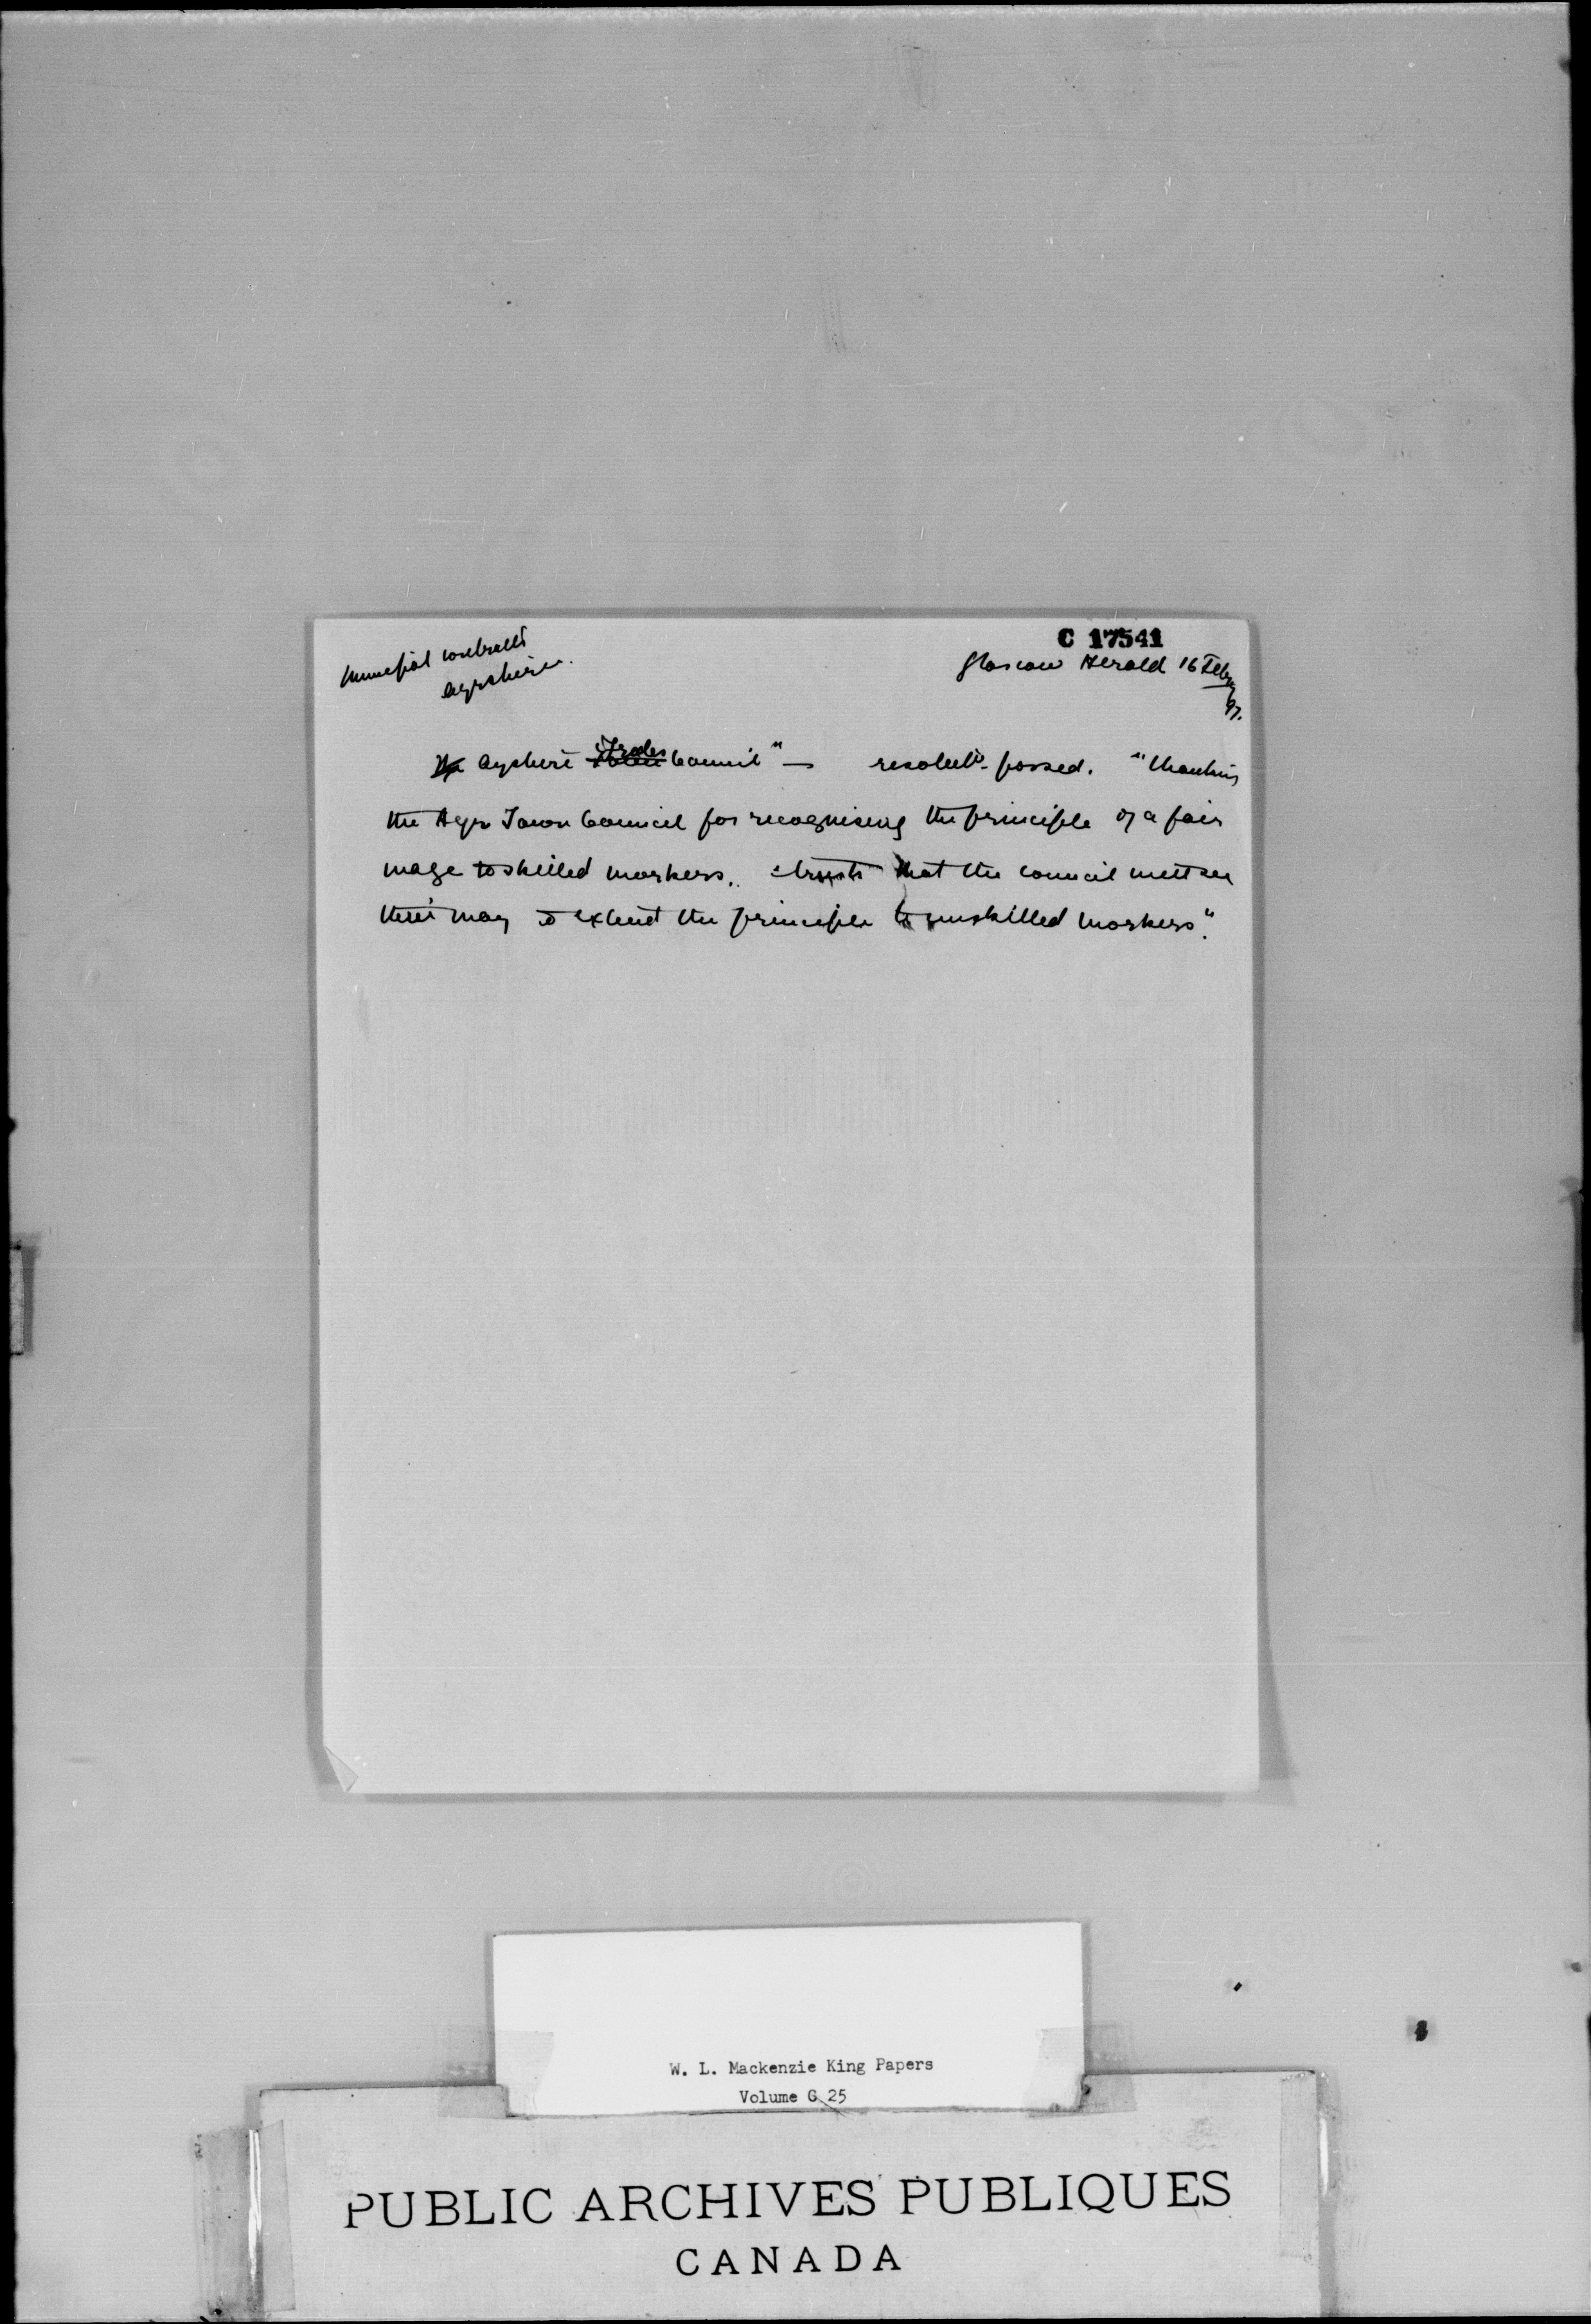 C 17541
Municipal contracts
Ayrshire.
Glascow Herald 16 Febry
97.
The Ayshire Trades Council" — resolutn- passed. "thanking
the Ayr Town Council for recognising the principle of a fair
wage to skilled workers. & trusts that the council will see
their way to extend the principle to unskilled workers".
W. L. Mackenzie King Papers
Volume G 25
PUBLIC ARCHIVES PUBLIQUES
CANADA